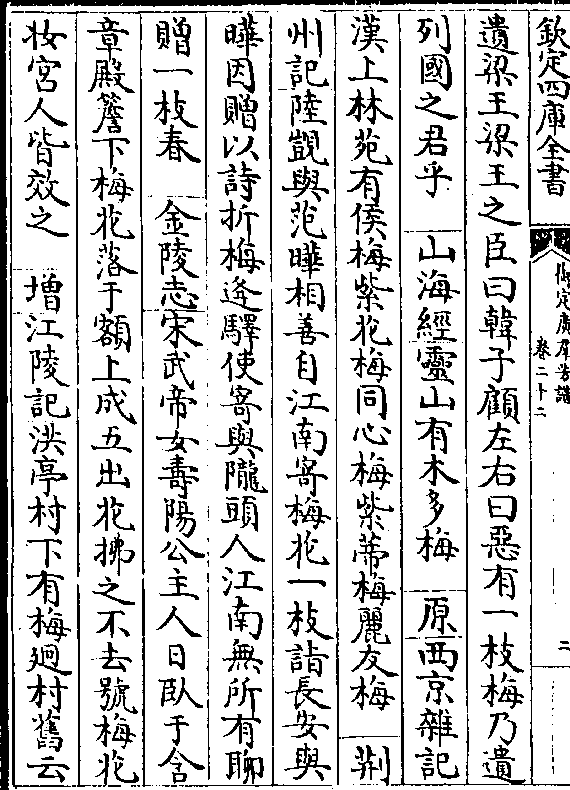 欽定四庫全書
御定廣羣芳譜
卷二十二
二
遺梁王梁王之臣曰韓子顧左右曰惡有一枝梅乃遺
列國之君乎 山海經靈山有木多梅 原西京雜記
漢上林苑有侯梅紫花梅同心梅紫蔕梅麗友梅 荆
州記陸覬與范曄相善自江南寄梅花一枝詣長安與
曄因贈以詩折梅逢驛使寄與隴頭人江南無所有聊
贈一枝春 金陵志宋武帝女壽陽公主人日臥于含
章殿簷下梅花落于額上成五出花拂之不去號梅花
妝宮人皆效之 增江陵記洪亭村下有梅迴村舊云